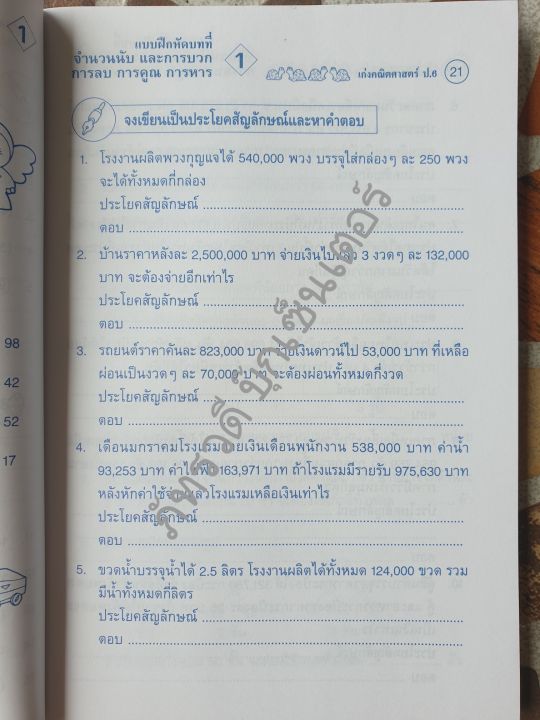 1
แบบฝึกหัดบทที่
จำนวนนับ และการบวก
การลบ การคูณ การหาร
1
เก่งคณิตศาสตร์ ป.6
21
จงเขียนเป็นประโยคสัญลักษณ์และหาคำตอบ
1. โรงงานผลิตพวงกุญแจได้ 540,000 พวง บรรจุใส่กล่องๆ ละ 250 พวง
จะได้ทั้งหมดกี่กล่อง
ประโยคสัญลักษณ์
ตอบ
2. บ้านราคาหลังละ 2,500,000 บาท จ่ายเงินไปแล้ว 3 งวดๆ ละ 132,000
บาท จะต้องจ่ายอีกเท่าไร
ประโยคสัญลักษณ์
ตอบ
3. รถยนต์ราคาคันละ 823,000 บาท จ่ายเงินดาวน์ไป 53,000 บาท ที่เหลือ
ผ่อนเป็นงวดๆ ละ 70,000 บาท จะต้องผ่อนทั้งหมดกี่งวด
ประโยคสัญลักษณ์
ตอบ
4. เดือนมกราคมโรงแรมจ่ายเงินเดือนพนักงาน 538,000 บาท ค่าน้ำ
93,253 บาท ค่าไฟฟ้า 163,971 บาท ถ้าโรงแรมมีรายรับ 975,630 บาท
หลังหักค่าใช้จ่ายแล้วโรงแรมเหลือเงินเท่าไร
ประโยคสัญลักษณ์
ตอบ
5. ขวดน้ำบรรจุน้ำได้ 2.5 ลิตร โรงงานผลิตได้ทั้งหมด 124,000 ขวด รวม
มีน้ำทั้งหมดกี่ลิตร
ประโยคสัญลักษณ์
ตอบ
98
42
52
17
ภัทราวดี บุ๊คเซ็นเตอร์